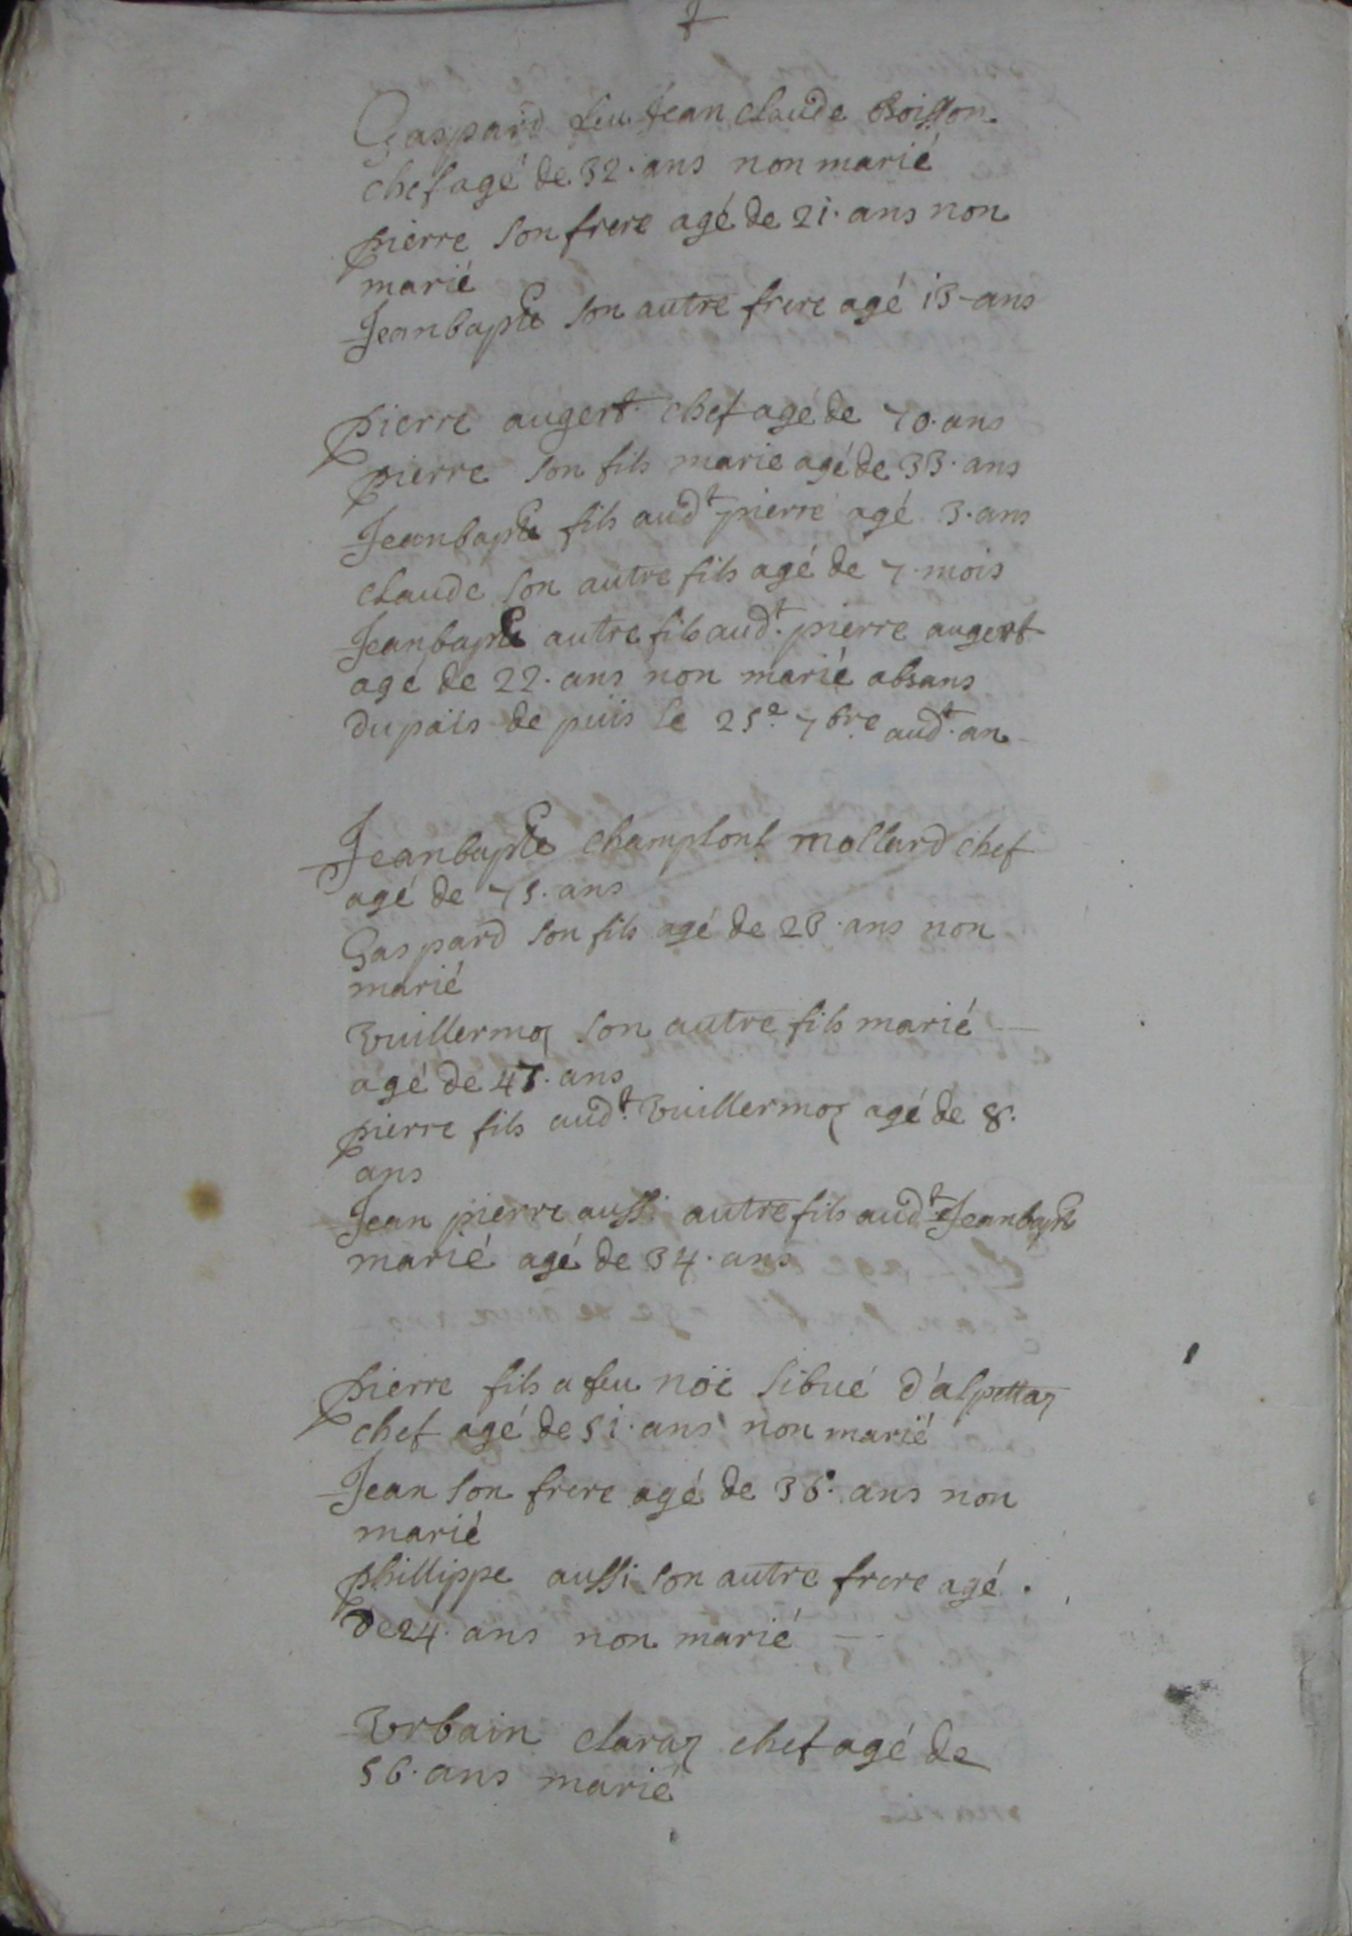 Gaspard feu Jean claude Boisson
chef agé de 32. ans non marié
pierre son frere agé de 21. ans non
marié
Jeanbapte son autre frere agé 13 ans
pierre augert chef agé de 70. ans
pierre son fils marié agé de 33. ans
Jeanbapte fils audt pierre agé 3. ans
claude son autre fils agé de 7. mois
Jeanbapte autre fils audt. pierre augert
agé de 22. ans non marié absans
du païs de puis le 25e. 7bre audt. an
Jeanbapte champlont mollard chef
agé de 75. ans
Gaspard son fils agé de 28. ans non
marié
Vuillermoz son autre fils marié
agé de 47. ans
pierre fils audt. Vuillermoz agé de 8.
ans
Jean pierre aussi autre fils audt Jeanbapte
marié agé de 34. ans
pierre fils a feu noë sibué d'alpettaz
chef agé de 51. ans non marié
Jean son frere agé de 36. ans non
marié
phillippe aussi son autre frere agé
de 24. ans non marié
Vrbain claraz chef agé de
56. ans marié